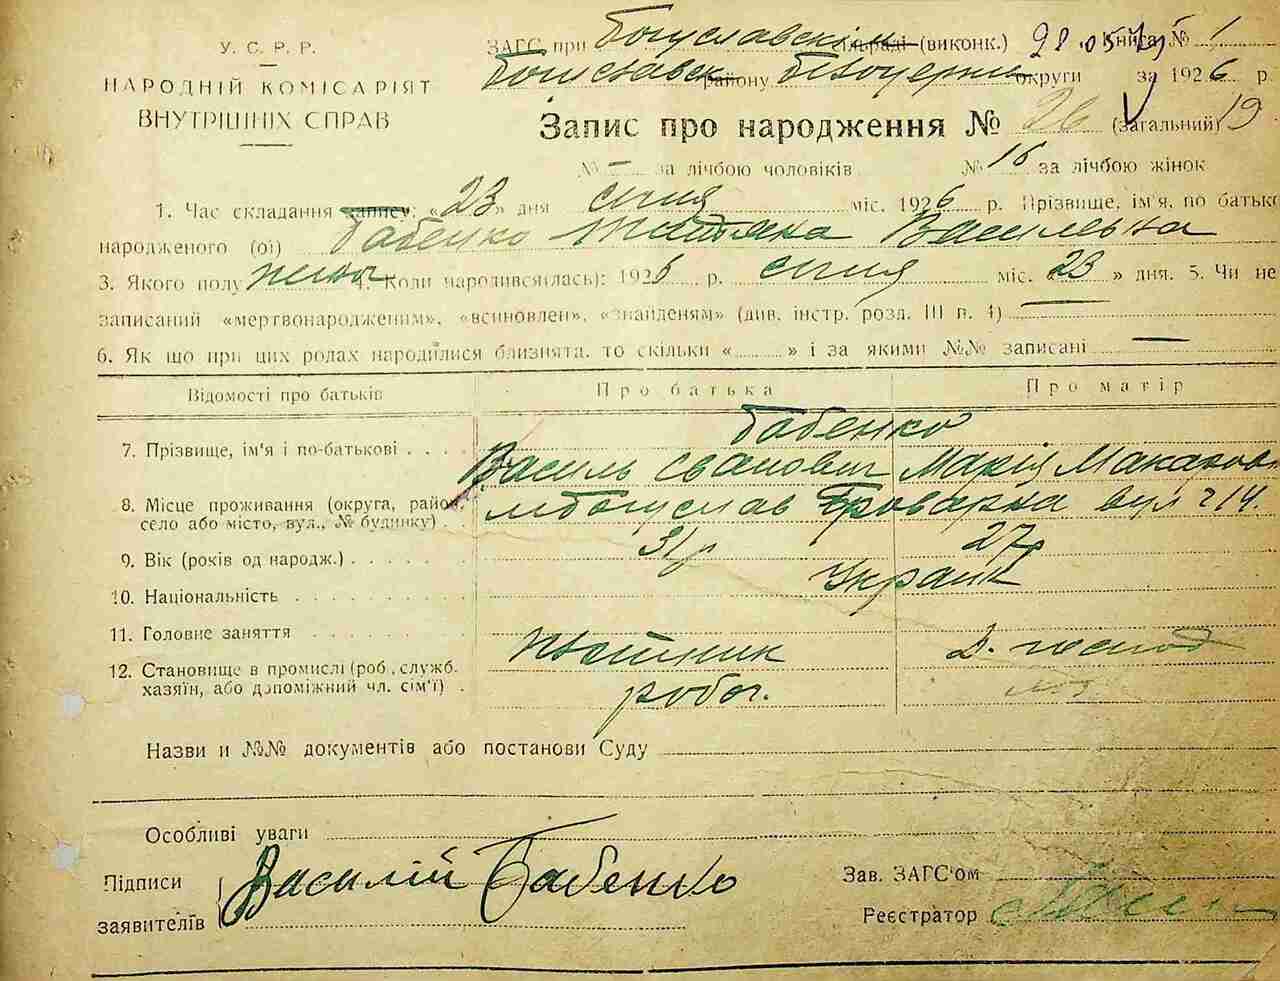 У. С. Р. Р.
НАРОДНІЙ КОМІСАРІЯТ
ВНУТРІШНІХ СПРАВ
ЗАГС при Богуславскім сільраді (виконк.) Книга № 1
Богуславск району Білоцерків округи за 1926 р.
Запис про народження № 26 (загальний) 19
№ — за лічбою чоловіків № 16 за лічбою жінок
1. Час складання запису: «23» дня січня міс. 1926 р. Прізвище, ім'я, по батько
народженого (ої) Бабенко Васильвна
3. Якого полу жіноч 4. Коли народився(лась): 1926 р. січня міс. «23» дня. 5. Чи не
записаний «мертвонародженим», «всиновлен», «знайденям» (див. інстр. розд. III п. 4) —
6. Як що при цих родах народилися близнята, то скільки « » і за якими №№ записані —
Відомості про батьків Про батька Про матір
Бабенко
7. Прізвище, ім'я і по-батькові Василь Іванович Марія Макаров
8. Місце проживання (округа, район, село або місто, вул., № будинку) м Богуслав Броварна вул ч 14.
9. Вік (років од народж.) 31 р 27 р
10. Національність Україн
11. Головне заняття д. господ
12. Становище в промислі (роб., служб. хазяїн, або допоміжний чл. сім'ї) робог.
Назви и №№ документів або постанови Суду
Особливі уваги
Підписи
заявителів Василій Бабенко
Зав. ЗАГС'ом
Реєстратор